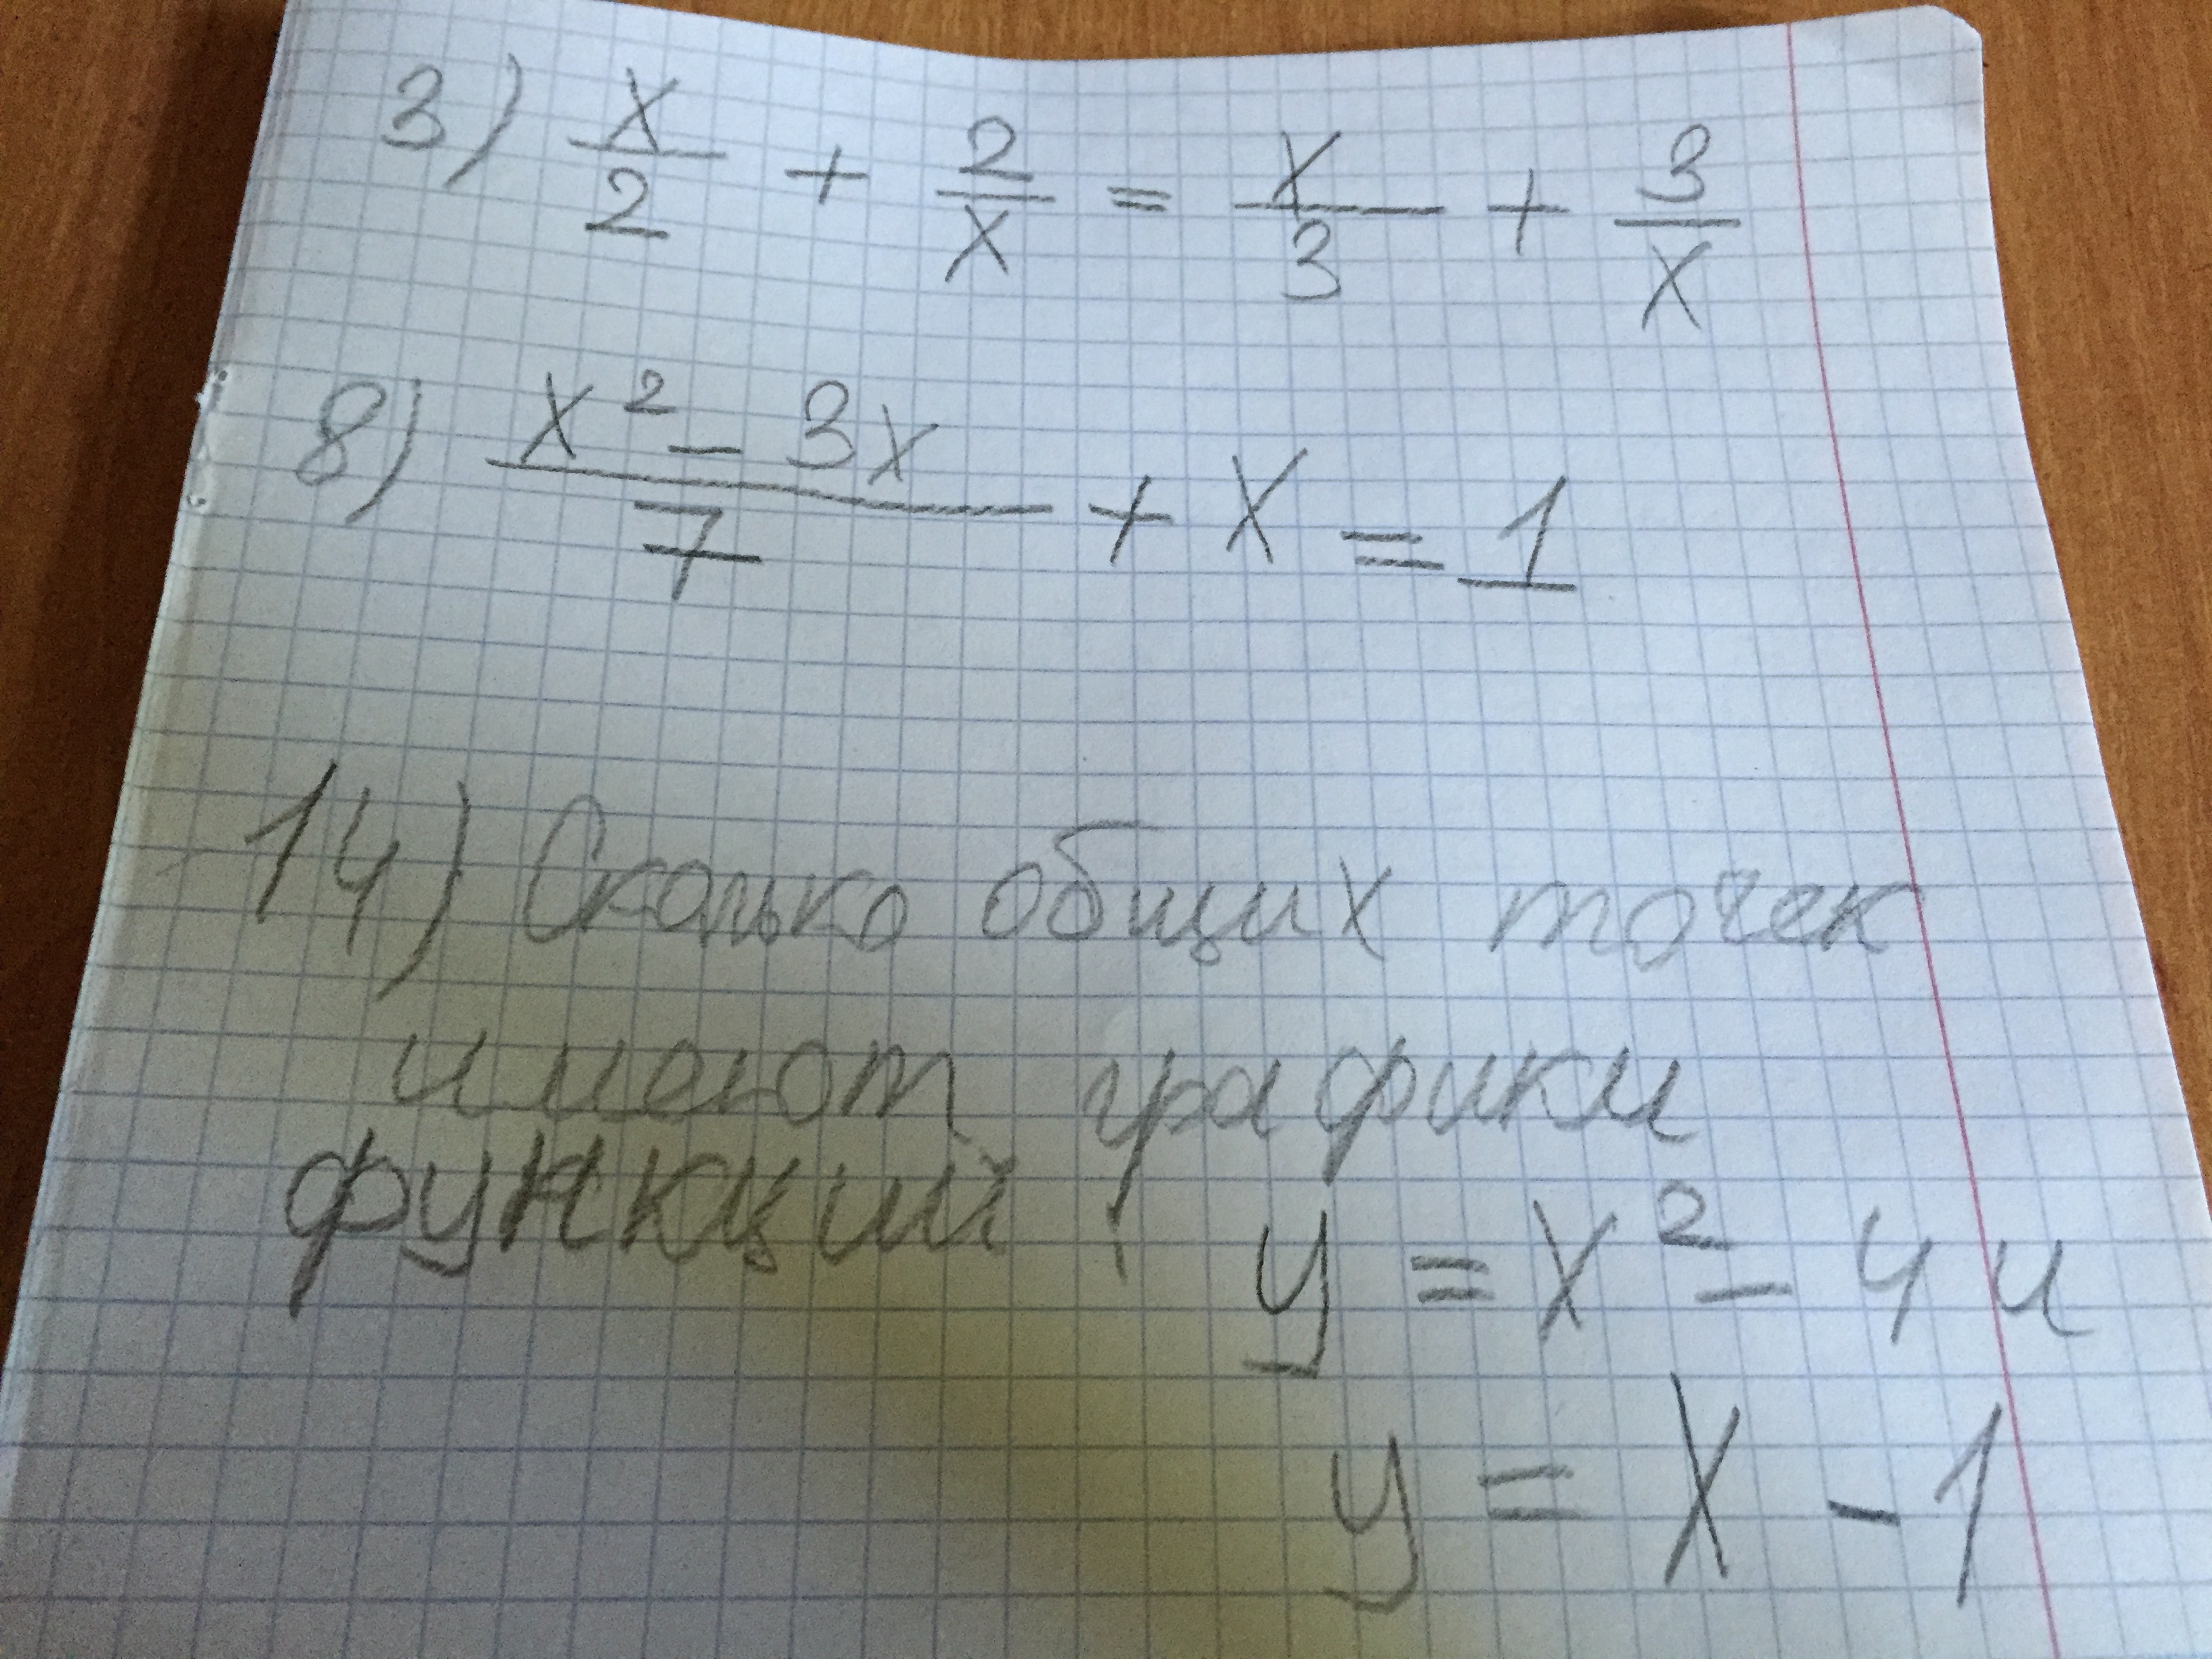 3) x/2 + 2/x = x/3 + 3/x
8) (x² - 3x)/7 + x = 1
14) Сколько общих точек
имеют графики
функций : y = x² - 4 и
y = x - 1